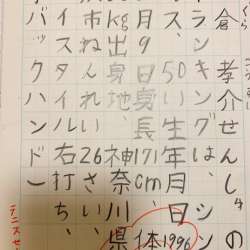 くら
倉 孝介せんしゅの
ランキングは、シン
ス、50い生年月日1996
月9日身長171cm、体
kg出身地、神奈川県
市ねんれい26さい、
イスタイル右打ち、
バックハンド
テニスセ